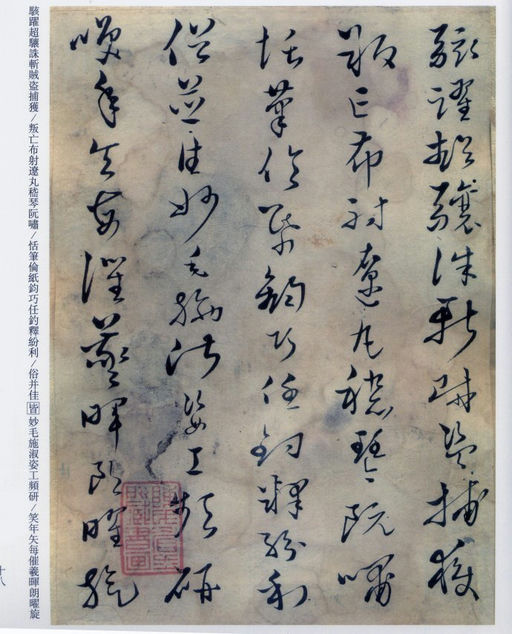 駭躍超驤誅斬賊盜捕獲
叛亡布射遼丸嵇琴阮嘯
恬筆倫紙鈞巧任釣釋紛利
俗並佳妙毛施淑姿工頻研
笑年矢每催羲暉朗曜旋
駭躍超驤誅斬賊盜捕獲/叛亡布射遼丸嵇琴阮嘯/恬筆倫紙鈞巧任釣釋紛利/俗并佳[皆]妙毛施淑姿工頻研/笑年矢每催羲暉朗曜旋